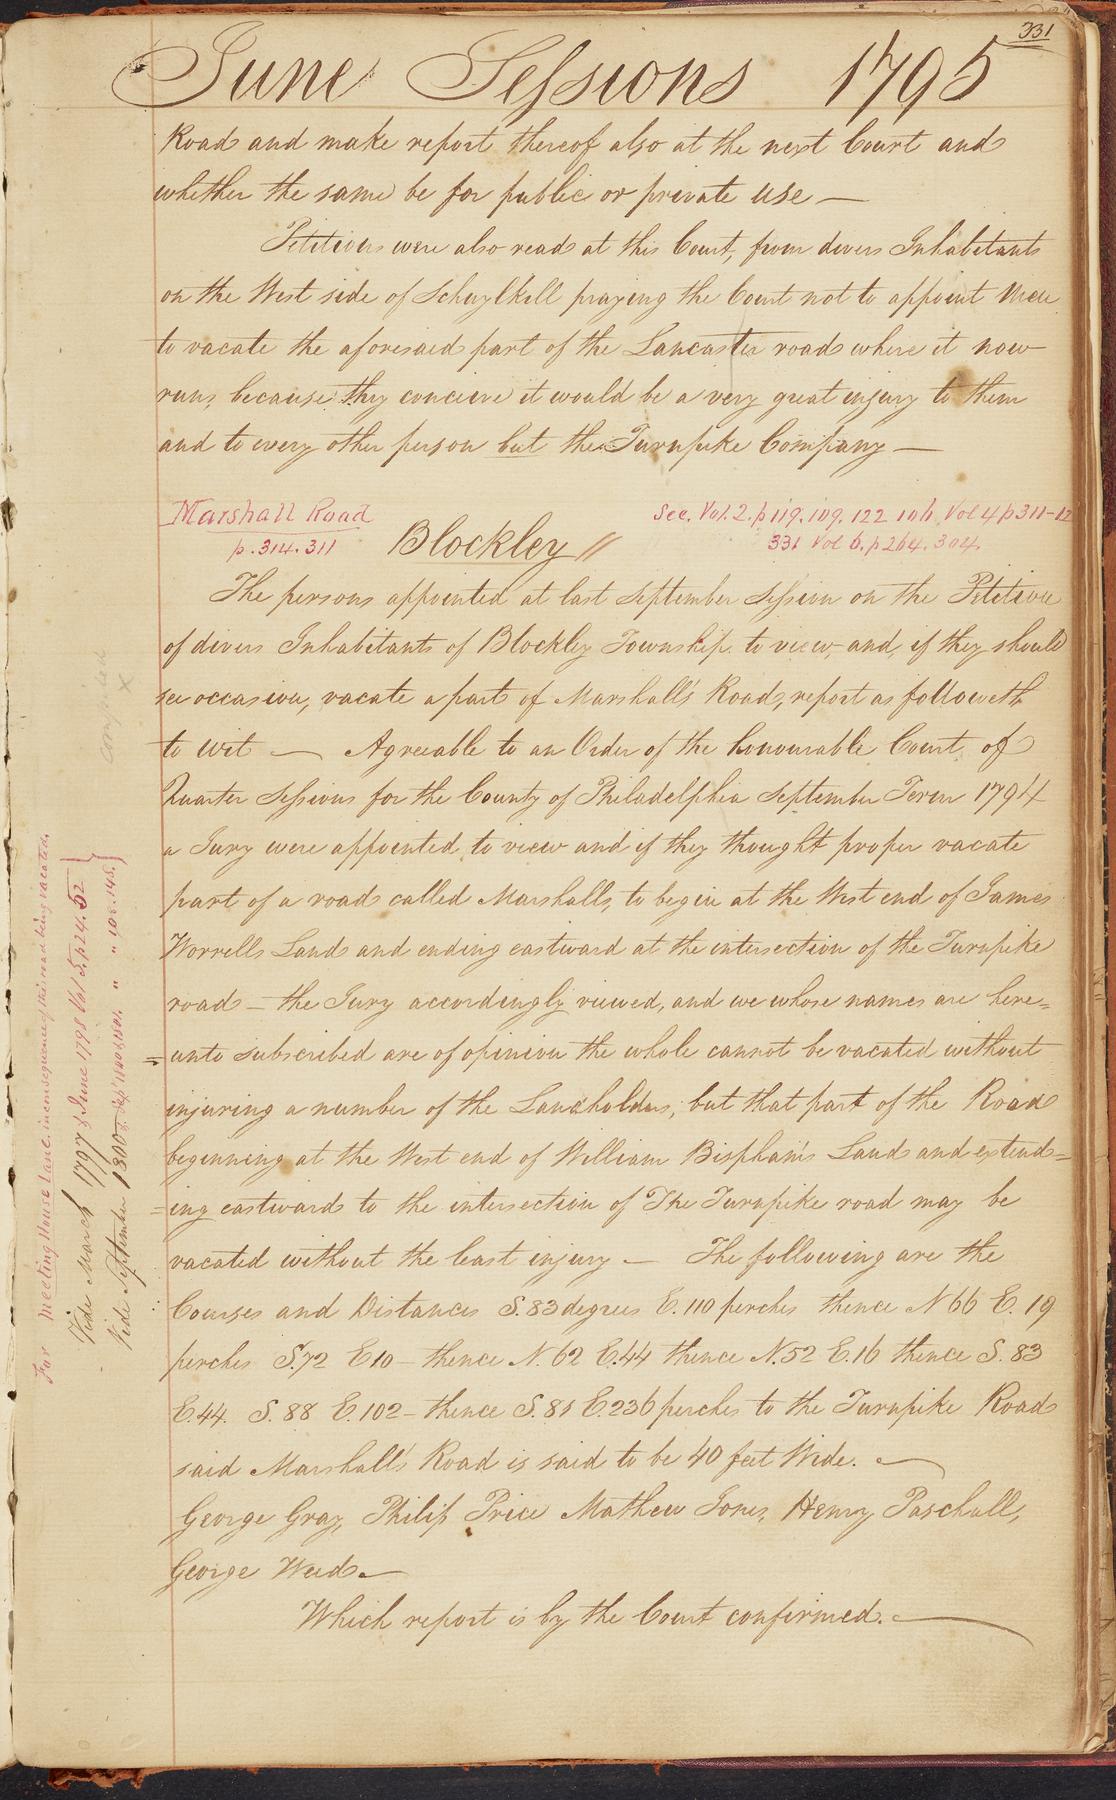 331
June Sessions 1795
Road and make report thereof also at the next Court and
whether the same be for public or private use —
Petitions were also read at this Court, from divers Inhabitants
on the West side of Schuylkill praying the Court not to appoint Men
to vacate the aforesaid part of the Lancaster road where it now
runs, because they concieve it would be a very great injury to them
and to every other person but the Turnpike Company —
Marshall Road
p. 314. 311
See. Vol. 2. p 119. 109. 122 106 Vol 4 p 311-12
331 Vol 6. p 264. 304.
Blockley //
The persons appointed at last September Session on the Petition
of divers Inhabitants of Blockley Township to view, and, if they should
see occasion, vacate a part of Marshall's Road, report as followeth
to wit — Agreeable to an Order of the honourable Court of
Quarter Sessions for the County of Philadelphia September Term 1794
a Jury were appointed to view and if they thought proper vacate
part of a road called Marshalls, to begin at the West end of James
Worrells Land and ending eastward at the intersection of the Turnpike
road — the Jury accordingly viewed, and we whose names are here=
=unto subscribed are of opinion the whole cannot be vacated without
injuring a number of the Landholders, but that part of the Road
beginning at the West end of William Bispham's Land and extend=
=ing eastward to the intersection of The Turnpike road may be
vacated without the least injury — The following are the
Courses and Distances S. 83 degrees E. 110 perches thence N 66 E. 19
perches S. 72 E 10 — thence N. 62 E. 44 thence N. 52 E. 16 thence S. 83
E. 44. S. 88 E. 102 — thence S. 81 E. 236 perches to the Turnpike Road
said Marshall's Road is said to be 40 feet Wide. —
George Gray, Philip Price Mathew Jones, Henry Paschall,
George Weed. —
Which report is by the Court confirmed. —
For Meeting House Lane. in consequence of this road being vacated.
Vide March 1797 & June 1798 Vol 5. p 24. 52
Vide September 1800 & Sep 1801 " " 108. 145.